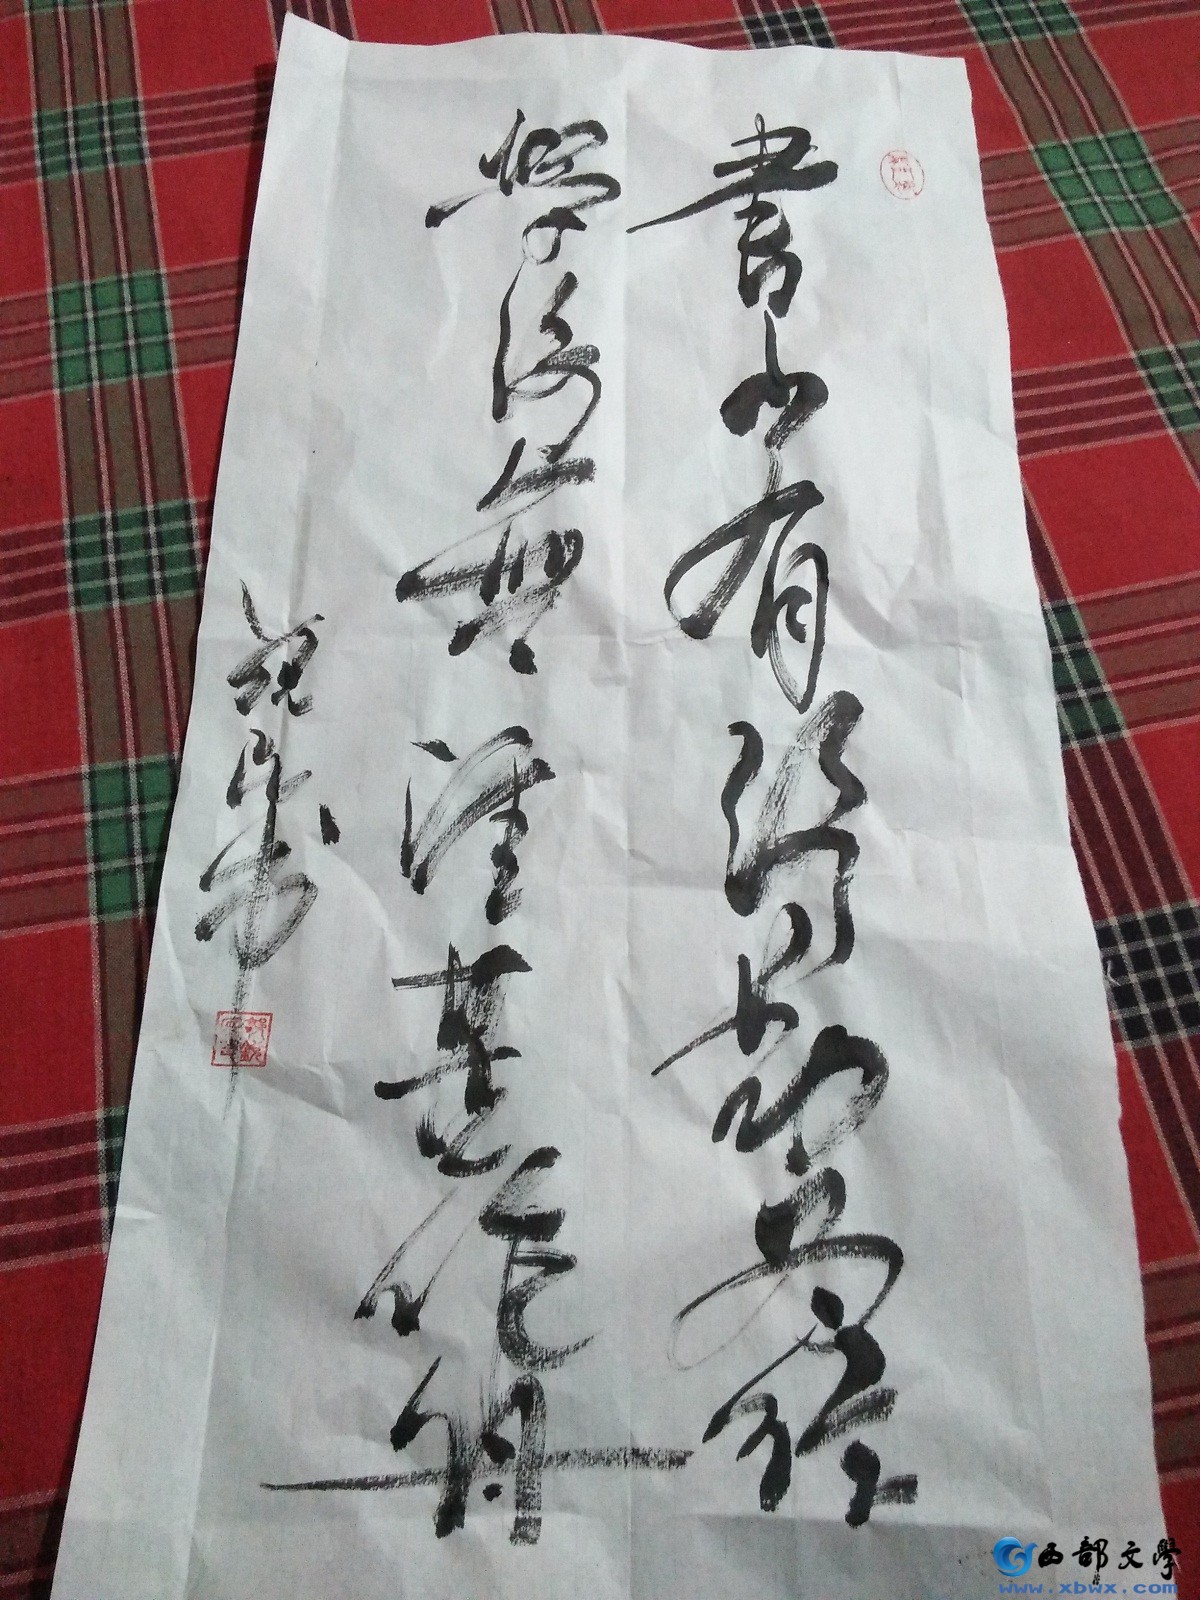 書山有路勤為徑
學海無涯苦作舟
西部文學
www.xbwx.com